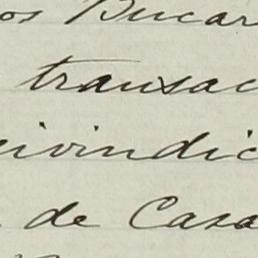 os Bucar
transac
eivindic
de Casa